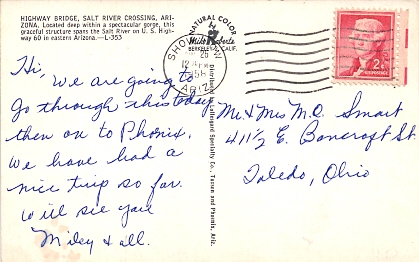 HIGHWAY BRIDGE, SALT RIVER CROSSING, ARI-
ZONA. Located deep within a spectacular gorge, this
graceful structure spans the Salt River on U. S. High-
way 60 in eastern Arizona.—L-353
NATURAL COLOR
Mike Roberts
BERKELEY 2, CALIF.
SHOW LOW
ARIZ
2¢
Hi,
we are going to
go through this today
then on to Phonix.
We have had a
nice trip so far.
Will see you
Miley & all.
Distributed by Lollesgard Specialty Co., Tucson and Phoenix, Ariz.
Mr & Mrs M.O. Smart
411½ E. Bancroft St.
Toledo, Ohio